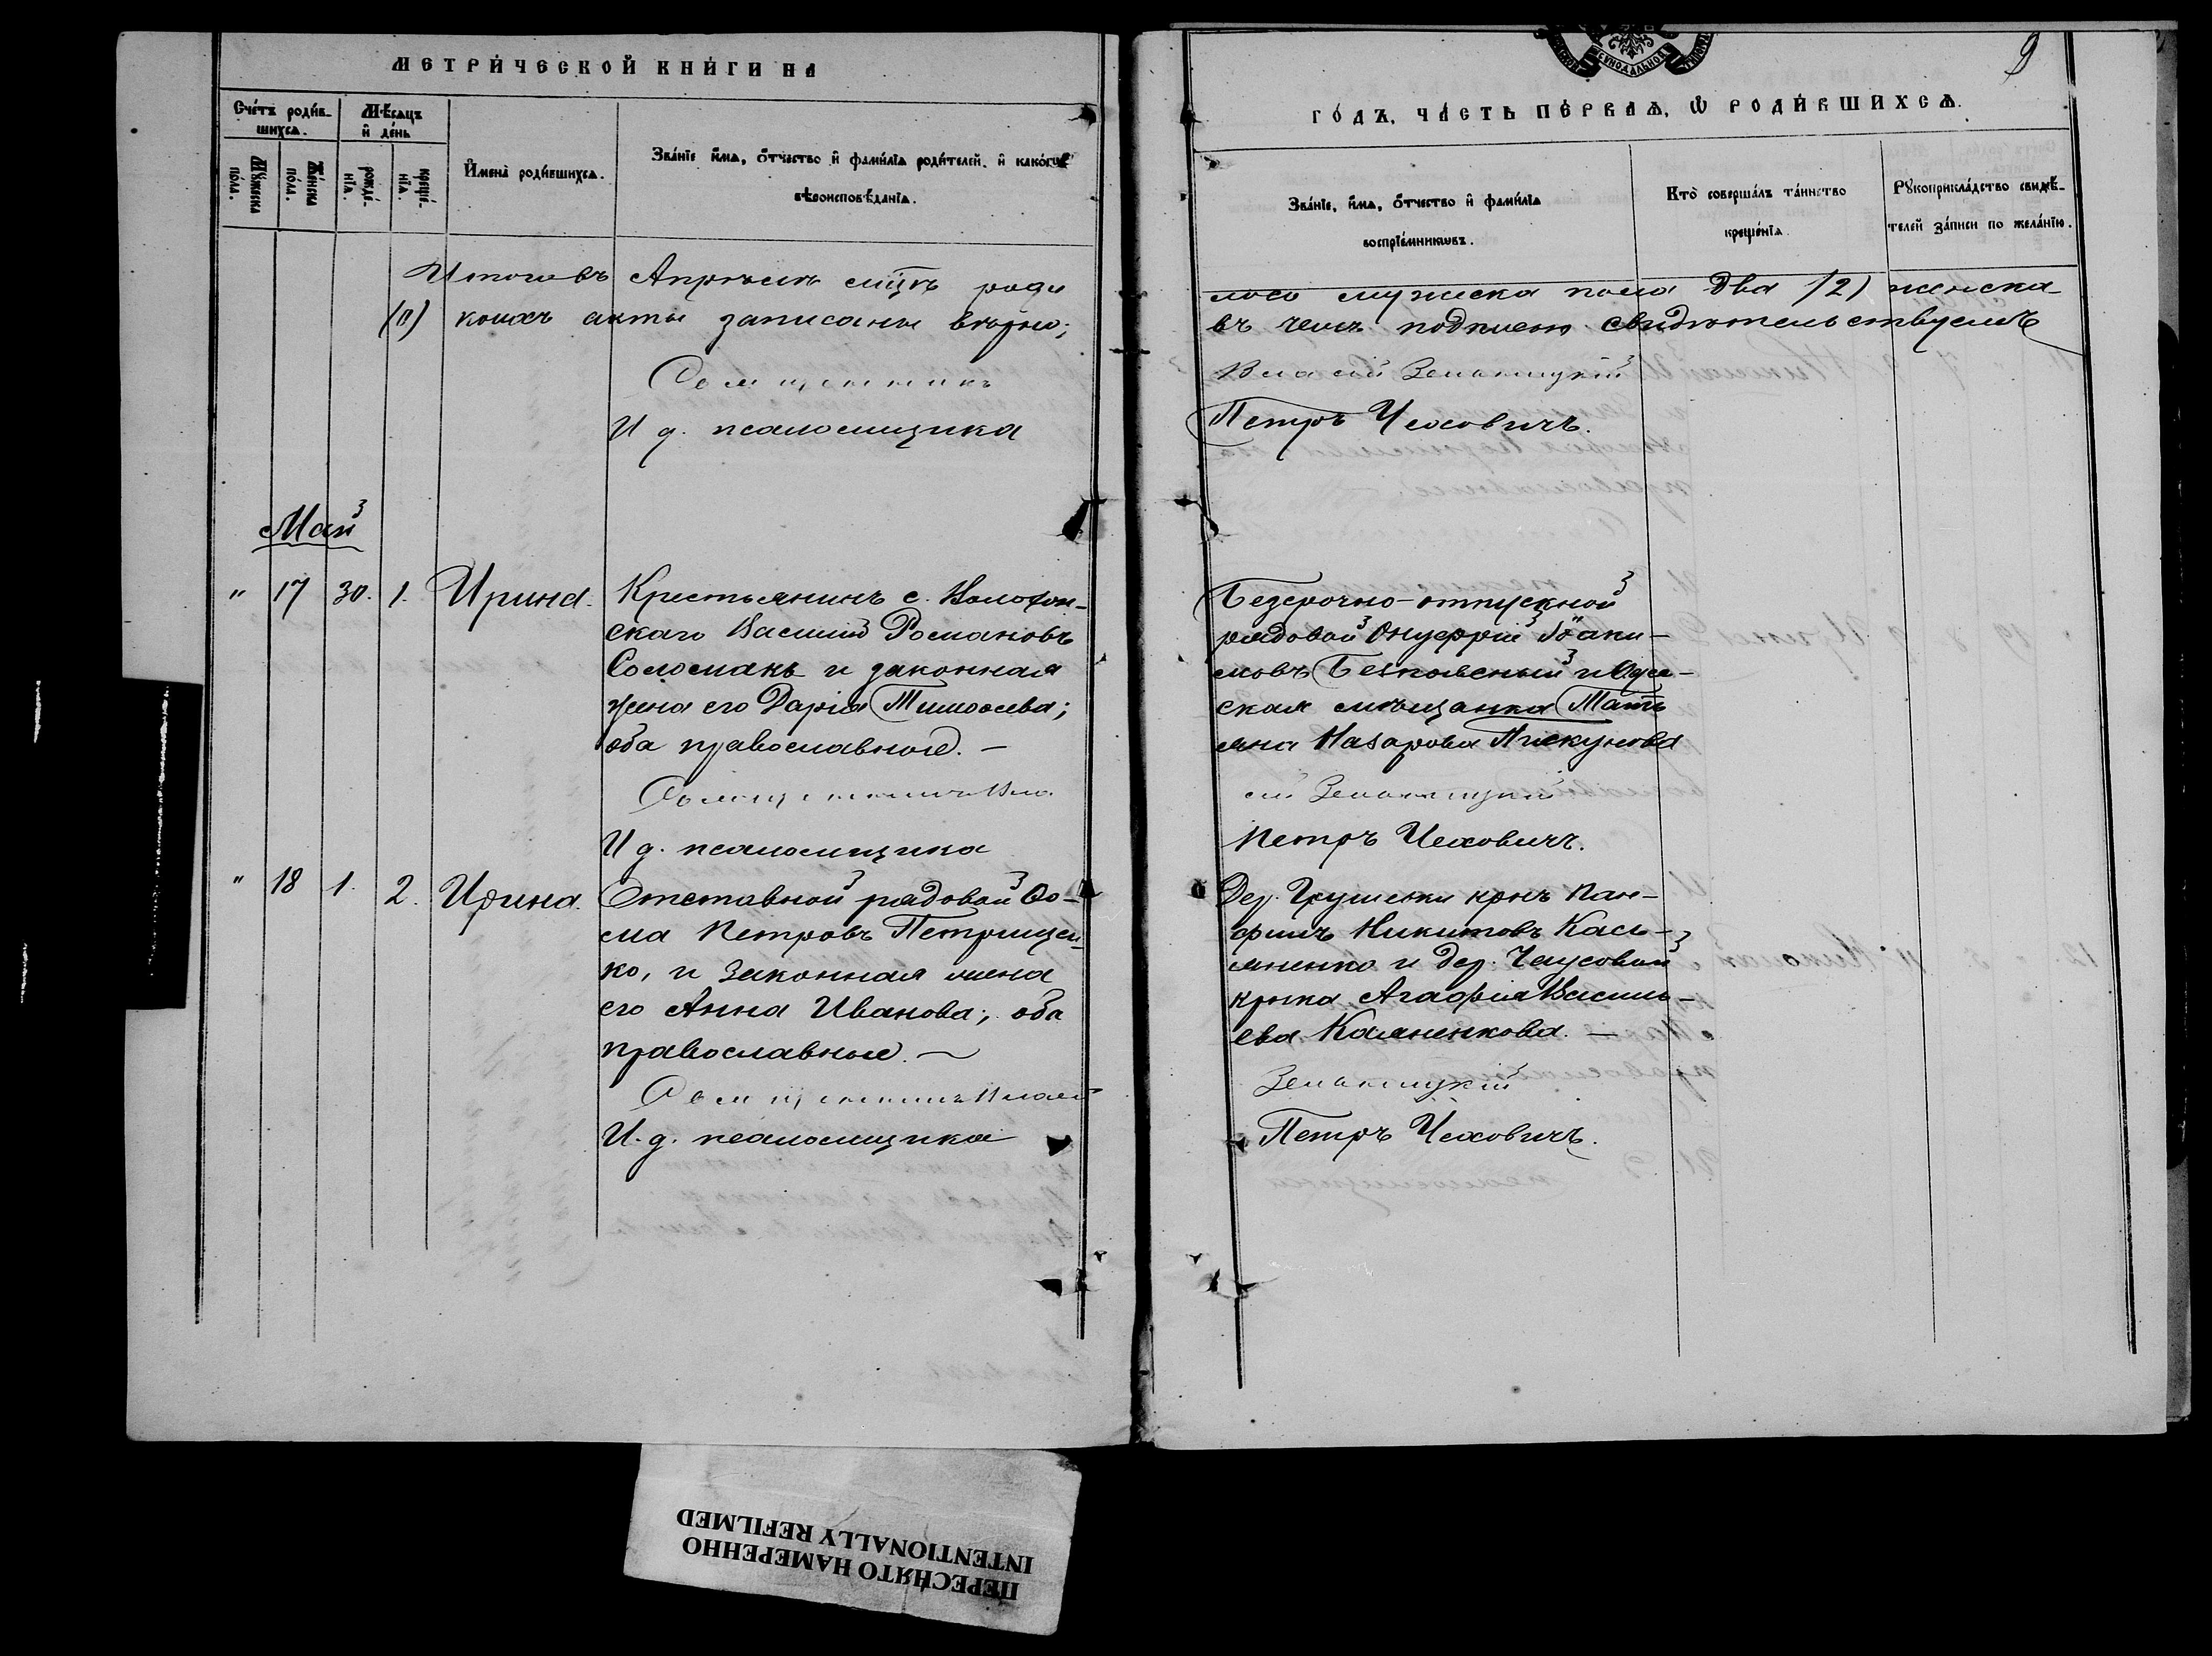 МЕТРИ́ЧЕСКОЙ КНИ́ГИ НА
Счéтъ роди́в-
шихся.
Мѣсяцъ
и҆ дéнь
Мꙋ́жеска
пóла.
Жéнска
пóла.
рождé-
нїѧ.
крещé-
нїѧ.
И҆менà роди́вшихсѧ.
Звáнїе и҆́мѧ, ѻ҆́тчество и҆ фами́лїѧ роди́телей, и҆ какóгѡ
вѣроисповѣ́данїѧ.
Итого въ Апрѣлѣ мцѣ роди
(11) коихъ акты записаны вѣрно;
Священникъ
И д. псаломщика
Май
" 17 30. 1. Ирина. Крестьянинъ с.
скаго Василій Романовъ
Соломаха и законная
жена его Дарія Тимоѳеева;
оба православные. –
Священникъ Вла
И д. псаломщика
" 18 1. 2. Ирина. Отставной рядовой Ѳо-
ма Петровъ Петрищен-
ко, и законная жена
его Анна Иванова; оба
православные. –
Священникъ Власій
И. д. псаломщика
9
СѴНОДАЛЬНОЙ
ГÓДЪ, ЧА́СТЬ ПÉРВАѦ, Ѡ҆ РОДИ́ВШИХСѦ.
Звáнїе, и҆́мѧ, ѻ҆́тчество и҆ фами́лїѧ
воспрїéмникѡвъ.
Ктò совершáлъ тáинство
крещéнїѧ
Рꙋкоприклáдство свидѣ́-
телей зáписи по желáнїю.
лось мужеска пола два (2) женска
въ чемъ подписью свидѣтельствуемъ
Власій
Петръ Чеховичъ.
Безсрочно-отпускной
рядовой Онуфрій Іоаки-
мовъ и Одес-
ская мѣщанка Тать
яна Назарова Пискунова
сій
Петръ Чеховичъ.
Дер. Грушевки крнъ Пан-
филъ Никитовъ Кась-
яненко и дер. Чаусовой
крнка Агафія Василь-
ева Касяненкова. –
Петръ Чеховичъ.
ПЕРЕСНЯТО НАМЕРЕННО
INTENTIONALLY REFILMED